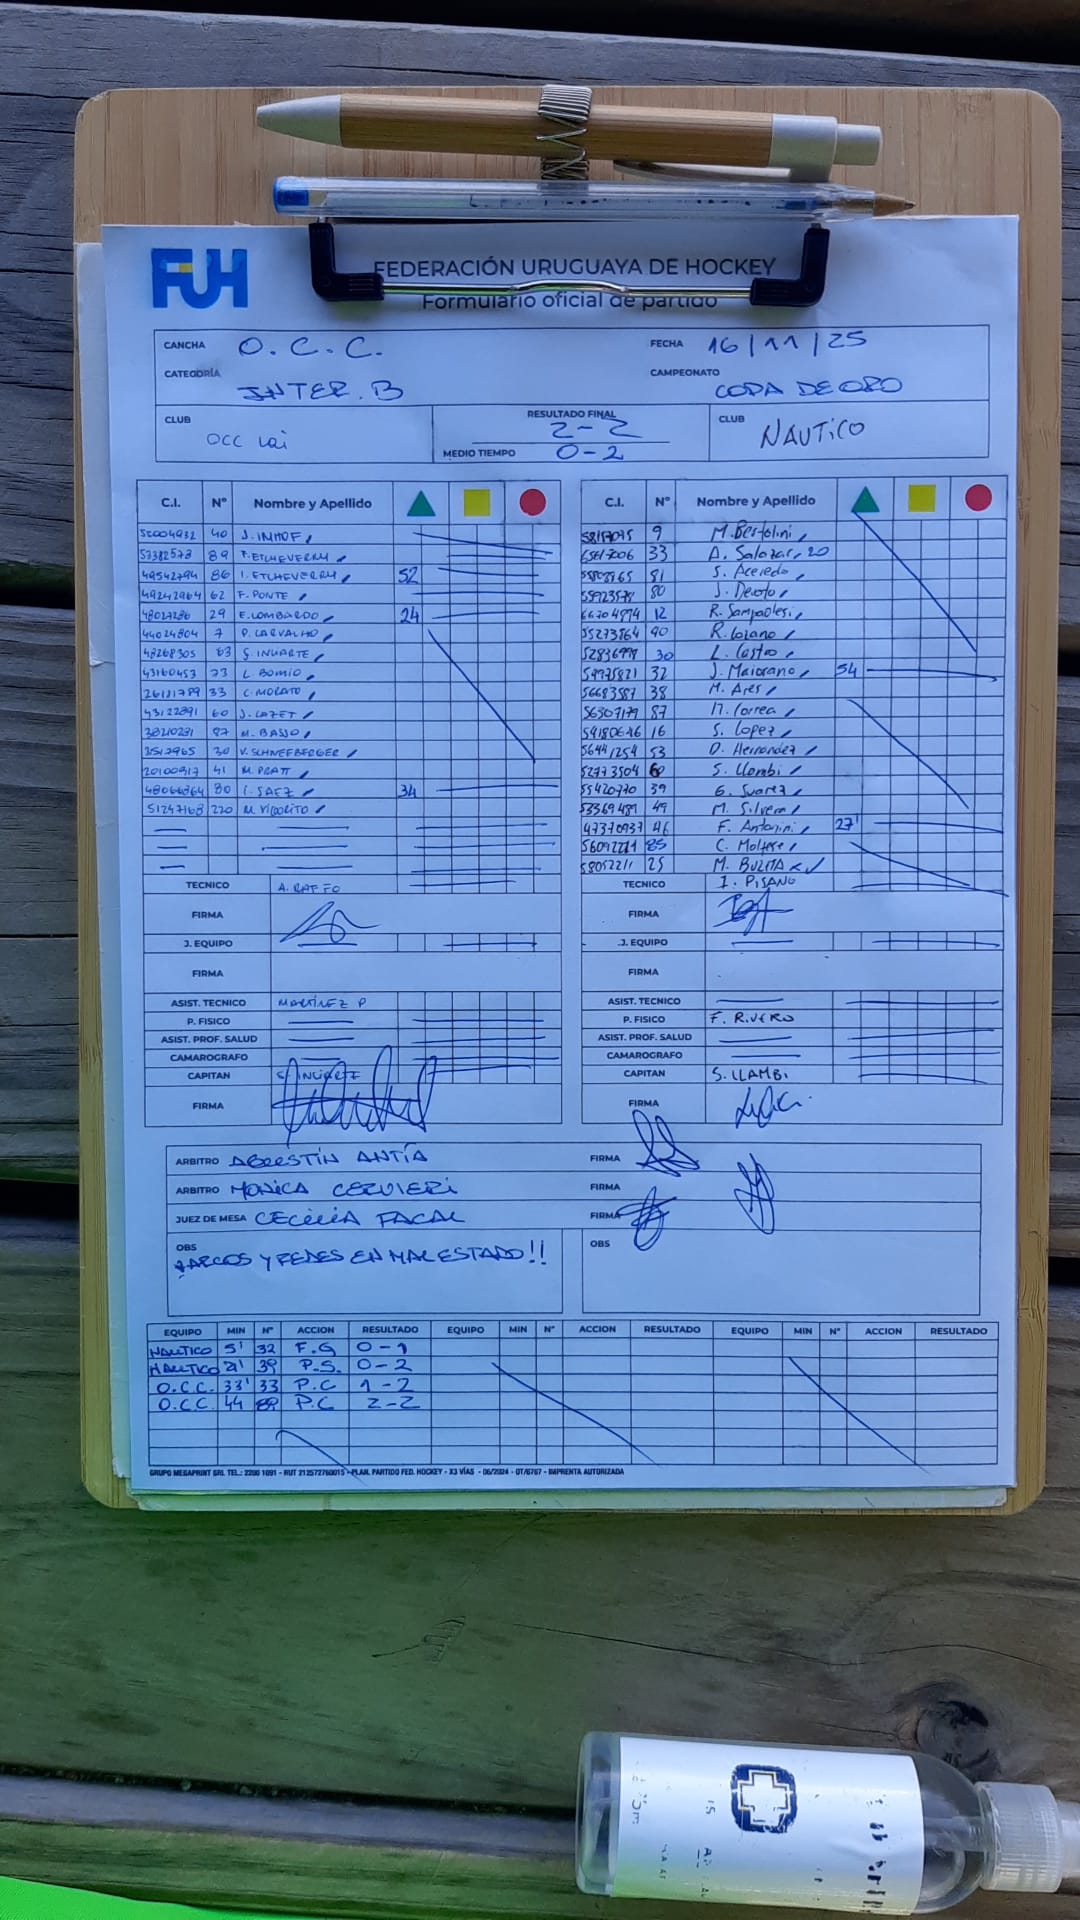 FUH
FEDERACIÓN URUGUAYA DE HOCKEY
Formulario oficial de partido
CANCHA O.C.C. FECHA 16/11/25
CATEGORÍA INTER.B CAMPEONATO COPA DE ORO
CLUB OCC RESULTADO FINAL 2-2 CLUB NAUTICO
MEDIO TIEMPO 0-2
C.I. Nº Nombre y Apellido C.I. Nº Nombre y Apellido
55004932 40 J. IMHOF 9 M. Bertolini
57382573 89 F. ETCHEVERRY 33 A. Salazar 20
49542794 86 I. ETCHEVERRY 52 81 S. Acevedo
49242964 62 F. PONTE 80 J. Devoto
48027286 29 E. LOMBARDO 24 12 R. Sampaolesi
44024804 7 P. CARVALHO 55273864 90 R. Lozano
48268305 63 S. INUARTE 52836998 30 L. Castro
43160453 73 L. BOMIO 32 J. Maiorano 54
26181789 33 C. MORATO 56683587 38 M. Ares
43122891 60 J. CAZET 56307179 87 M. Correa
87 M. BASSO 16 S. Lopez
30 V. SCHNEEBERGER 56441254 53 D. Hernandez
20100917 41 M. PRATT 52773504 S. Llambi
48066864 80 I. SAEZ 34 55420770 39 G. Suarez
51247168 220 M. VIPORITO 53369489 49 M. Silvera
47370937 46 F. Antonini 27'
C. Moltese
58052211 25 M.
TECNICO A. RAFFO TECNICO I. PISANO
FIRMA FIRMA
J. EQUIPO J. EQUIPO
FIRMA FIRMA
ASIST. TECNICO MARTÍNEZ P ASIST. TECNICO
P. FISICO P. FISICO F. RIVERO
ASIST. PROF. SALUD ASIST. PROF. SALUD
CAMAROGRAFO CAMAROGRAFO
CAPITAN S. INUARTE CAPITAN S. LLAMBI
FIRMA FIRMA
ARBITRO AGUSTÍN ANTÍA FIRMA
ARBITRO MONICA CERVIERI FIRMA
JUEZ DE MESA CECILIA FACAL FIRMA
OBS ARCOS Y REDES EN MAL ESTADO!! OBS
EQUIPO MIN Nº ACCION RESULTADO EQUIPO MIN Nº ACCION RESULTADO EQUIPO MIN Nº ACCION RESULTADO
NAUTICO 5' 32 F.G 0-1
NAUTICO 21' 39 P.S. 0-2
O.C.C. 33' 33 P.C 1-2
O.C.C. 44 89 P.C 2-2
GRUPO MEGAPRINT SRL TEL.: 2200 1691 - RUT 212572760015 - PLAN. PARTIDO FED. HOCKEY - X3 VÍAS - 06/2024 - OT/6767 - IMPRENTA AUTORIZADA